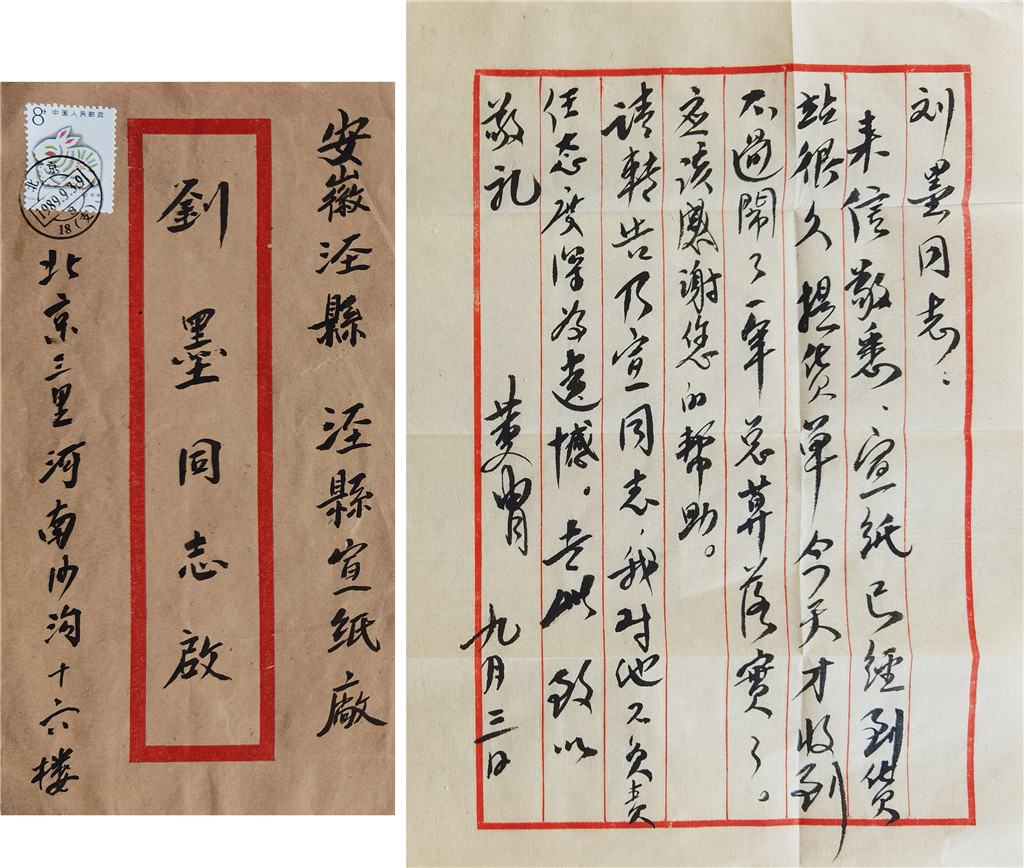 安徽泾縣 泾縣宣纸廠
劉墨同志啟
北京三里河南沙沟十六楼
8分 中国人民邮政
北京
1989.9.3.9
18(支)
刘墨同志：
来信敬悉、宣纸已經到货
站很久提货单今天才收到
不過闹了一年总算落實了。
应该感谢您的帮助。
请轉告乃宣同志，我对他不负责
任态度深为遗憾。专此 致以
敬礼
黄胄 九月三日